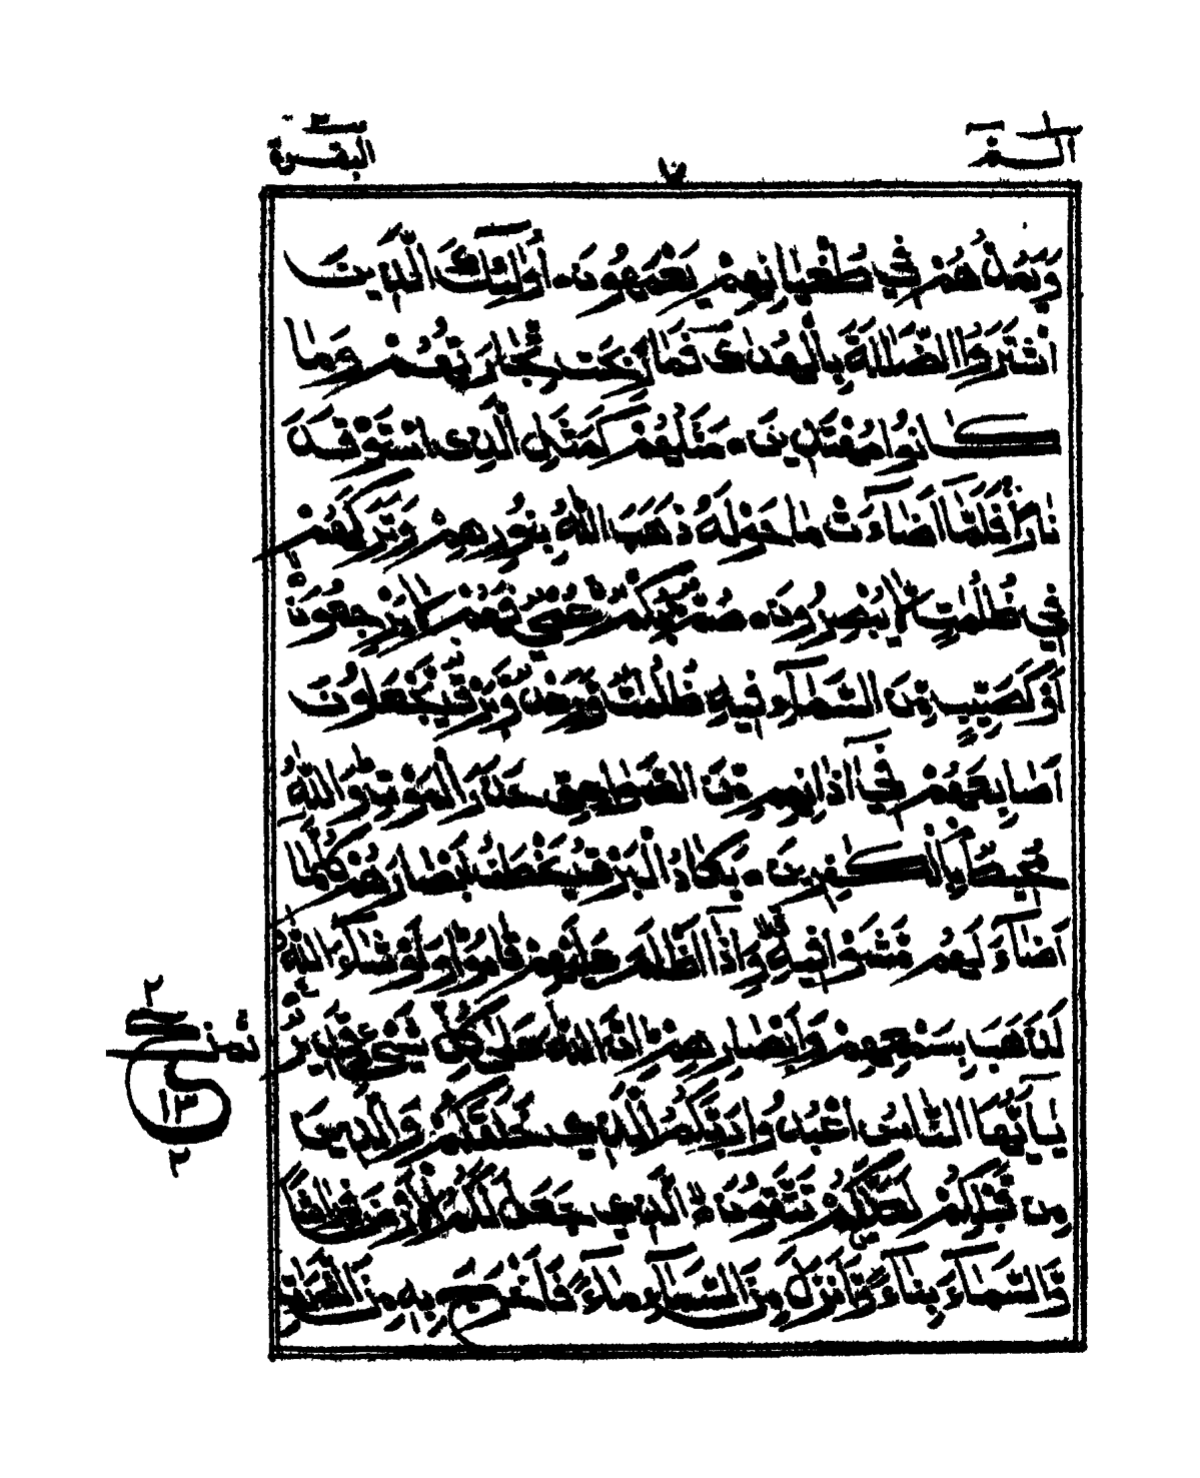 الٓمٓ ١
٧
البقرة ٢
وَيَمُدُّهُمْ فِي طُغْيَانِهِمْ يَعْمَهُونَ ۝ أُولَٰئِكَ الَّذِينَ
اشْتَرَوُا الضَّلَالَةَ بِالْهُدَىٰ فَمَا رَبِحَتْ تِّجَارَتُهُمْ وَمَا
كَانُوا مُهْتَدِينَ ۝ مَثَلُهُمْ كَمَثَلِ الَّذِي اسْتَوْقَدَ
نَارًا فَلَمَّا أَضَآءَتْ مَا حَوْلَهُ ذَهَبَ اللَّهُ بِنُورِهِمْ وَتَرَكَهُمْ
فِي ظُلُمَٰتٍ لَّا يُبْصِرُونَ ۝ صُمٌّ بُكْمٌ عُمْيٌ فَهُمْ لَا يَرْجِعُونَ ۝
أَوْ كَصَيِّبٍ مِّنَ السَّمَآءِ فِيهِ ظُلُمَٰتٌ وَّرَعْدٌ وَّبَرْقٌ يَّجْعَلُونَ
أَصَابِعَهُمْ فِيٓ آذَانِهِم مِّنَ الصَّوَاعِقِ حَذَرَ الْمَوْتِ وَاللَّهُ
مُحِيطٌ بِالْكَٰفِرِينَ ۝ يَكَادُ الْبَرْقُ يَخْطَفُ أَبْصَارَهُمْ كُلَّمَا
أَضَآءَ لَهُم مَّشَوْا فِيهِ وَإِذَآ أَظْلَمَ عَلَيْهِمْ قَامُوا وَلَوْ شَآءَ اللَّهُ
لَذَهَبَ بِسَمْعِهِمْ وَأَبْصَارِهِمْ إِنَّ اللَّهَ عَلَىٰ كُلِّ شَيْءٍ قَدِيرٌ
يَٰٓأَيُّهَا النَّاسُ اعْبُدُوا رَبَّكُمُ الَّذِي خَلَقَكُمْ وَالَّذِينَ
مِن قَبْلِكُمْ لَعَلَّكُمْ تَتَّقُونَ ۝ الَّذِي جَعَلَ لَكُمُ الْأَرْضَ فِرَاشًا
وَّالسَّمَآءَ بِنَآءً وَّأَنزَلَ مِنَ السَّمَآءِ مَآءً فَأَخْرَجَ بِهِ مِنَ الثَّمَرَٰتِ
٢
ثمن
ع
١٣
٢